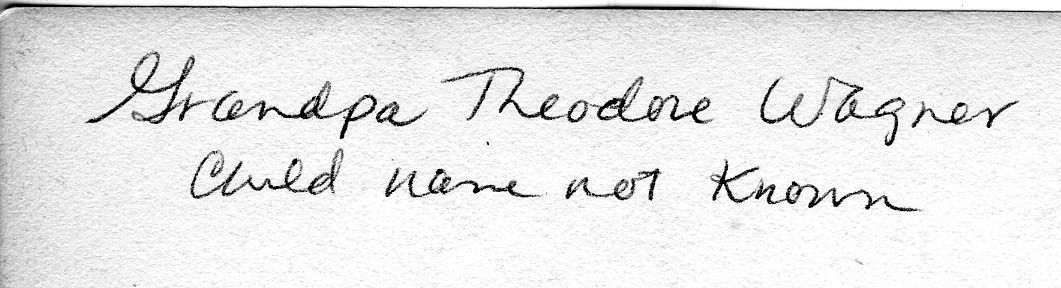 Grandpa Theodore Wagner
Child name not Known